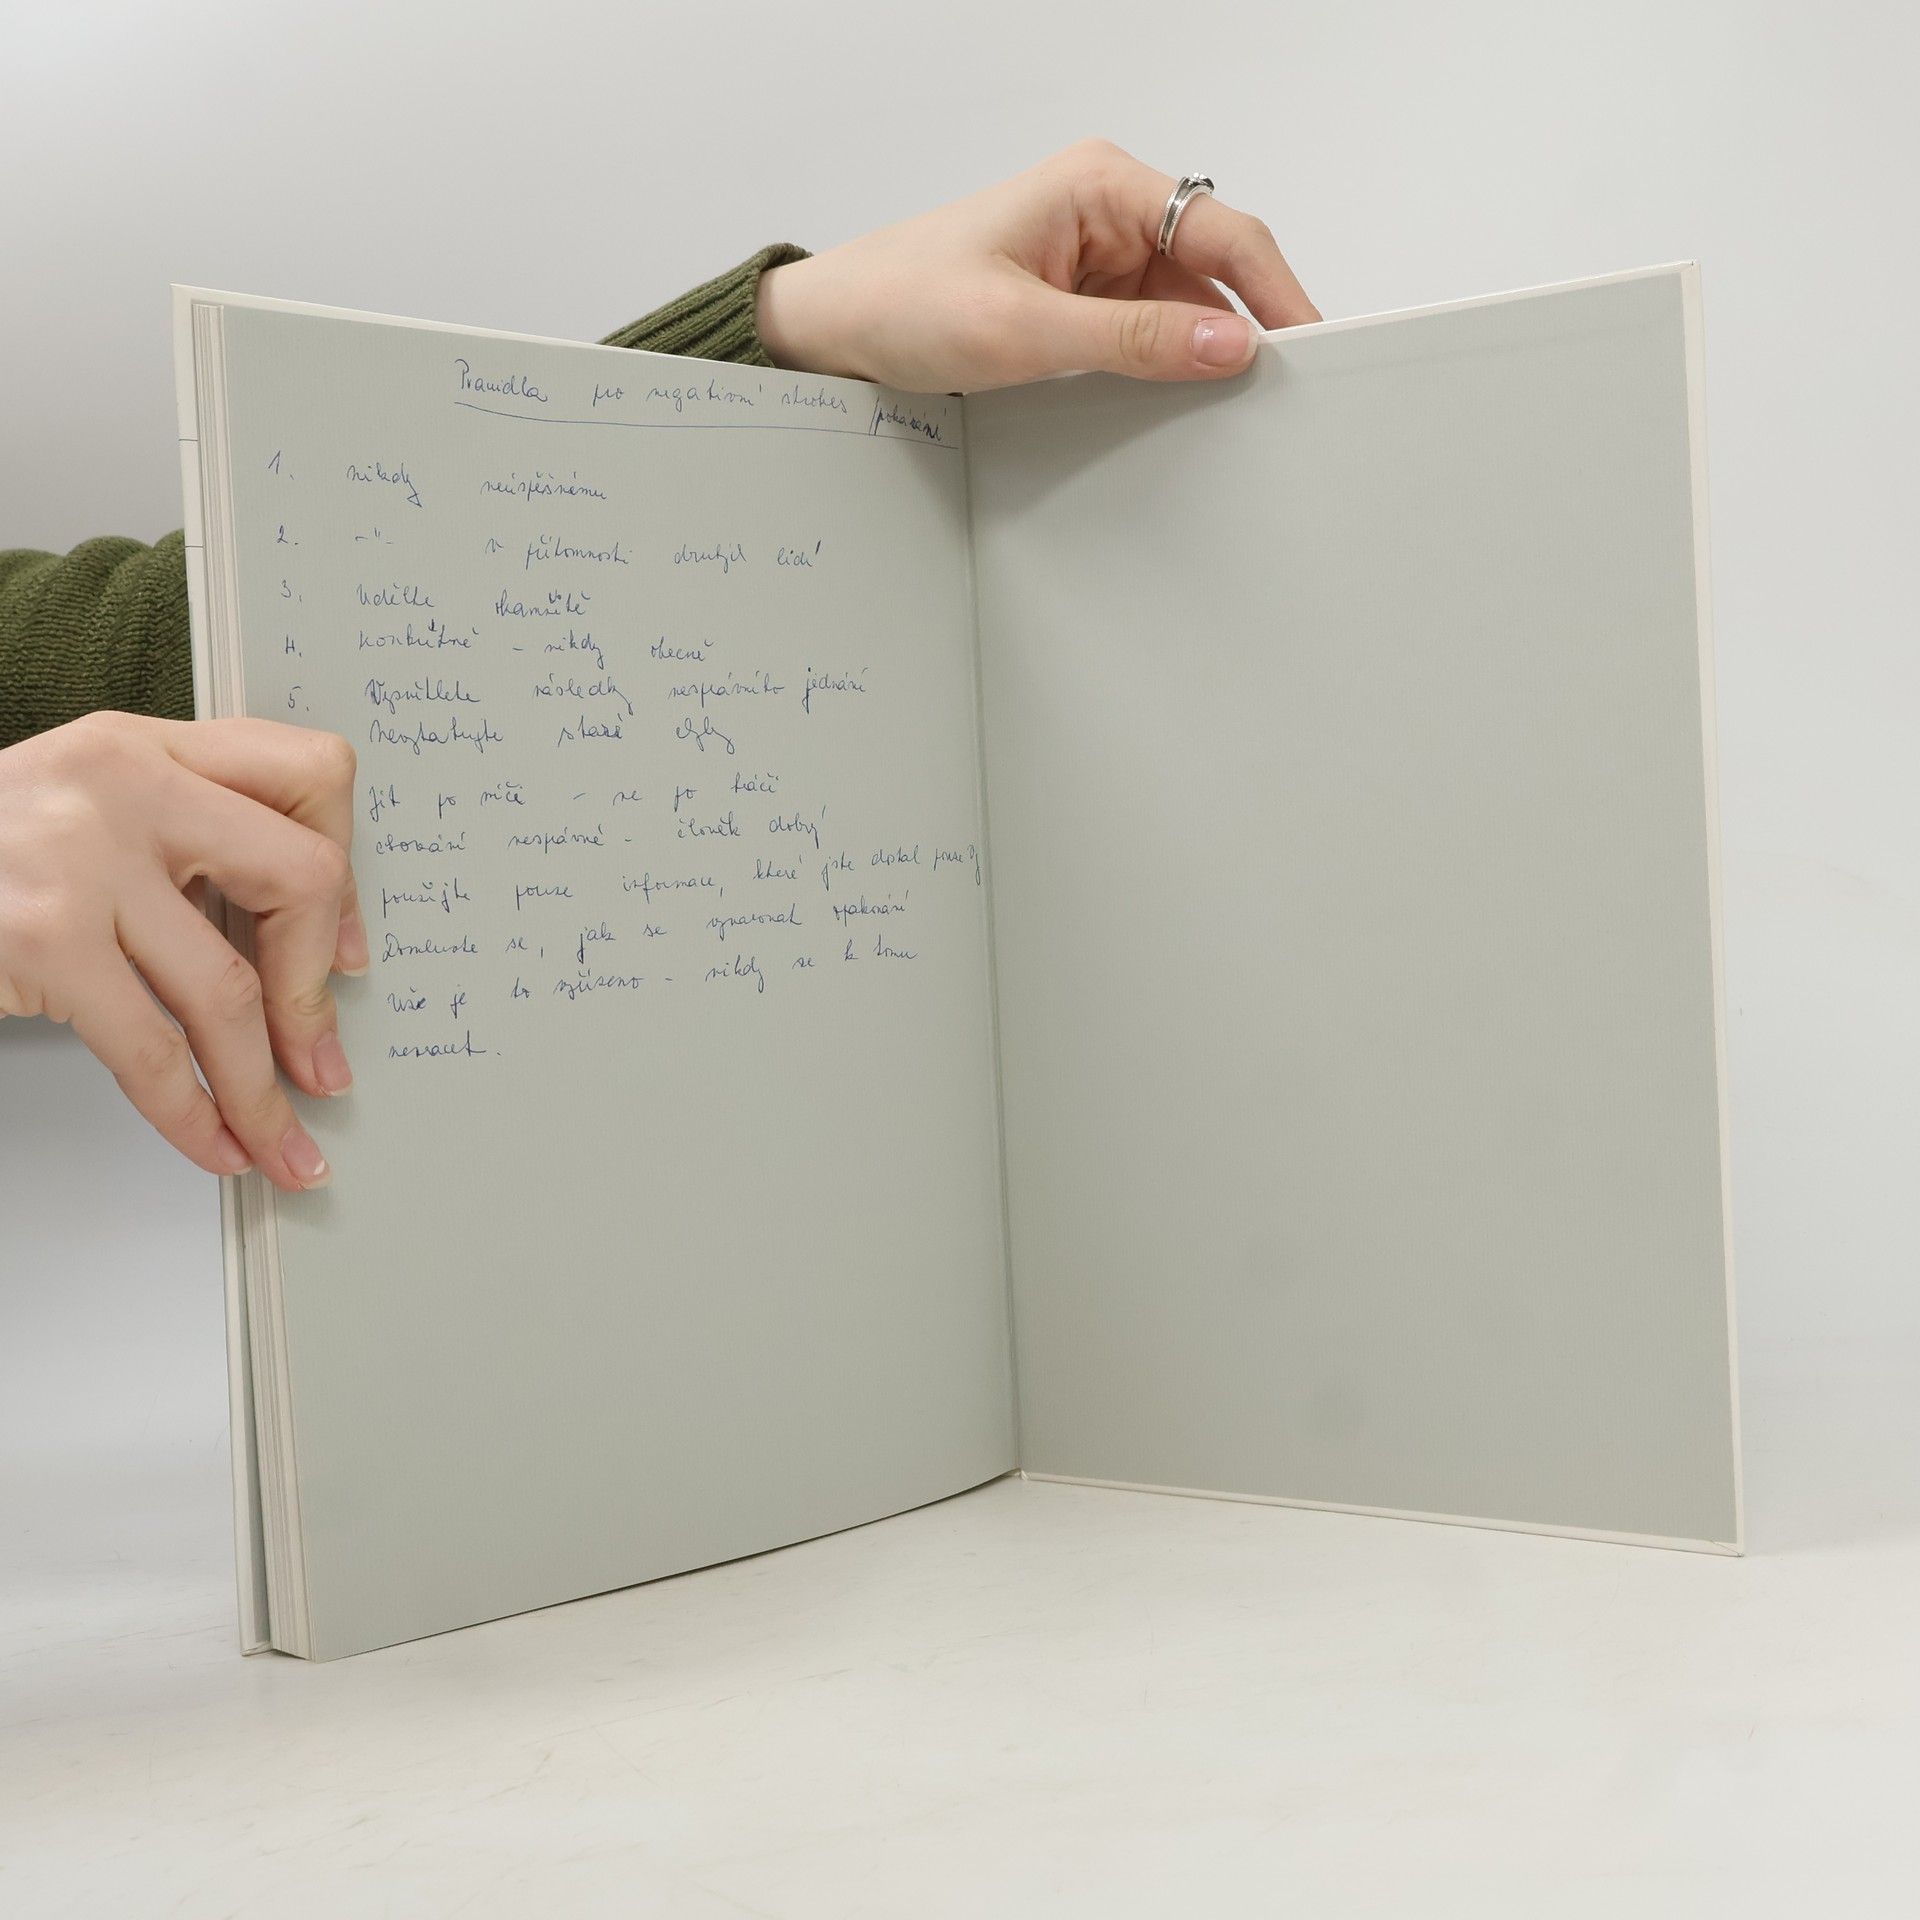 Pravidla pro negativní strokes /pokárání
1. nikdy neúspěšnému
2. -"- v přítomnosti druhých lidí
3. Udělte okamžitě
4. konkrétně - nikdy obecně
5. Vysvětlete následky nesprávného jednání
Nevytahujte staré chyby
Jít po míči - ne po hráči
chování nesprávné - člověk dobrý
použijte pouze informace, které jste dostal pouze Vy
Domluvte se, jak se vyvarovat opakování
Vše je to vyřízeno - nikdy se k tomu
nevracet.